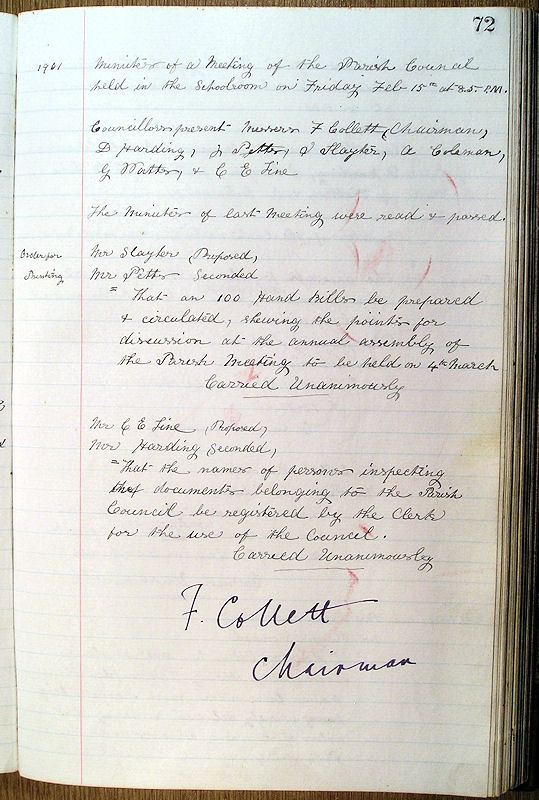 72
1901 Minutes of a Meeting of the Parish Council
held in the Schoolroom on Friday Feb 15th at 8.5. P.M.
Councillors present Messers F Collett, (Chairman,
D Harding, J Petts, J Slayter, A Coleman,
G Watts, & C E Line
The Minutes of last Meeting were read & passed.
Order for Printing
Mr Slayter (Proposed,
Mr Petts Seconded
"That an 100 Hand Bills be prepared
& circulated, shewing the points for
discussion at the annual assembly of
the Parish Meeting to be held on 4th March
Carried Unanimously
Mr C E Line (Proposed,
Mr Harding Seconded,
"That the names of persons inspecting
documents belonging to the Parish
Council be registered by the Clerk
for the use of the Council.
Carried Unanimously
F. Collett
Chairman